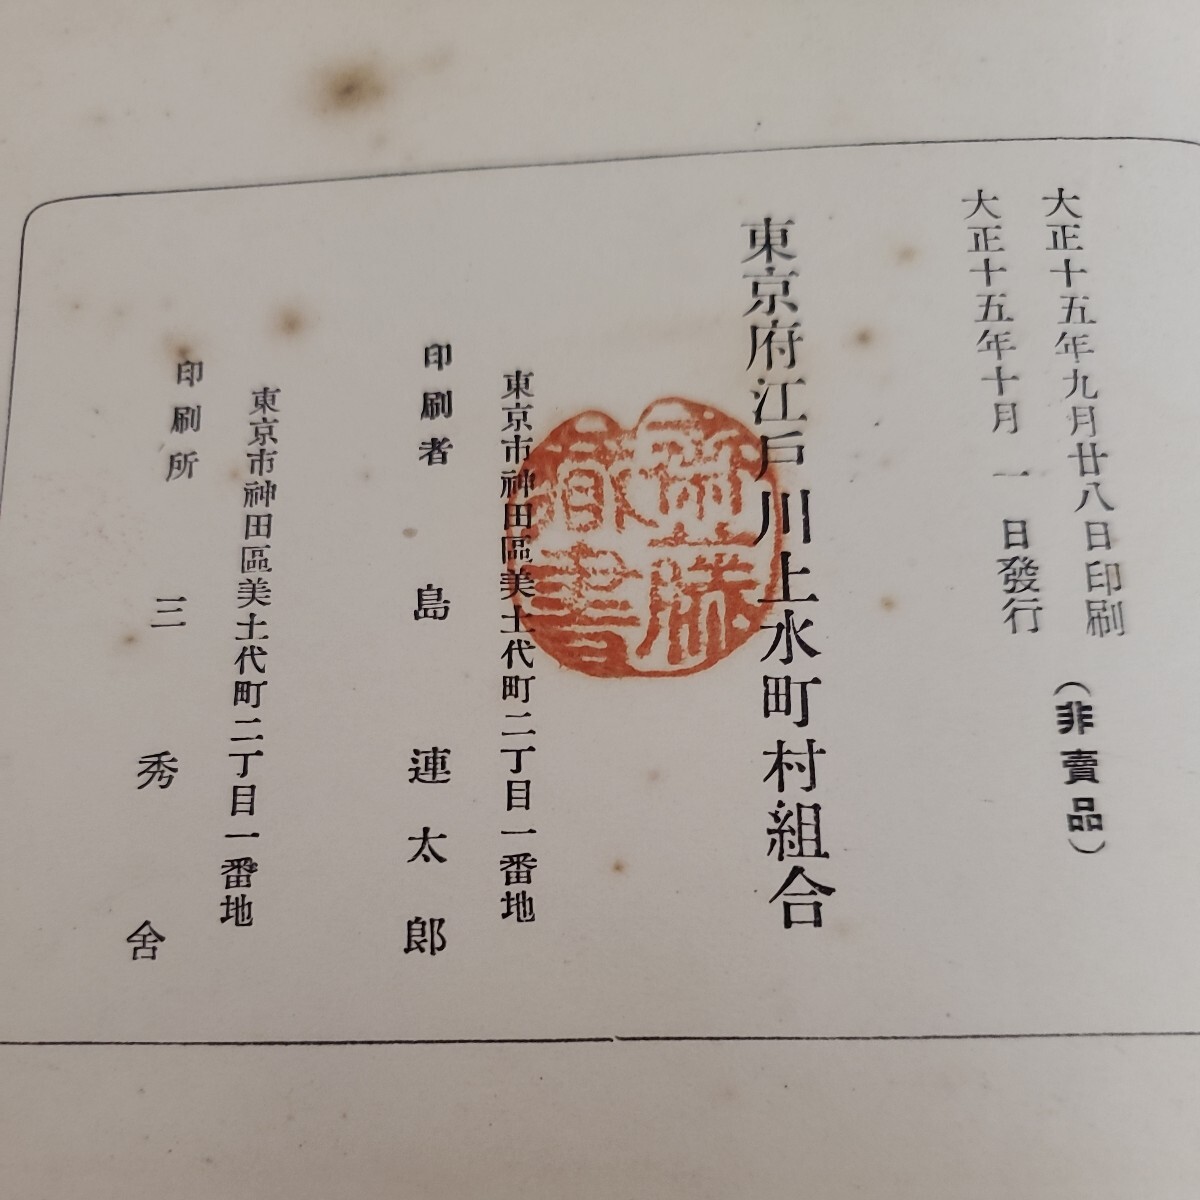 大正十五年九月廿八日印刷
(非賣品)
大正十五年十月一日發行
東京府江戸川上水町村組合
東京市神田區美土代町二丁目一番地
印刷者 島連太郎
東京市神田區美土代町二丁目一番地
印刷所 三秀舍